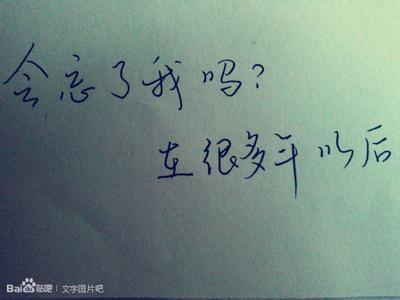 会忘了我吗？
在很多年以后
Bai贴吧 | 文字图片吧